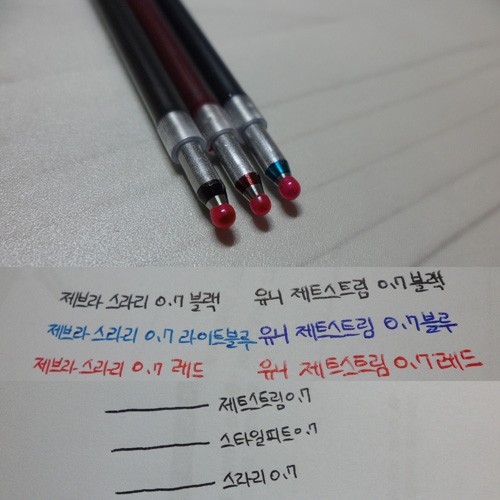 제브라 스라리 0.7 블랙 유니 제트스트림 0.7 블랙
제브라 스라리 0.7 라이트블루 유니 제트스트림 0.7 블루
제브라 스라리 0.7 레드 유니 제트스트림 0.7 레드
제트스트림 0.7
스타일피트 0.7
스라리 0.7